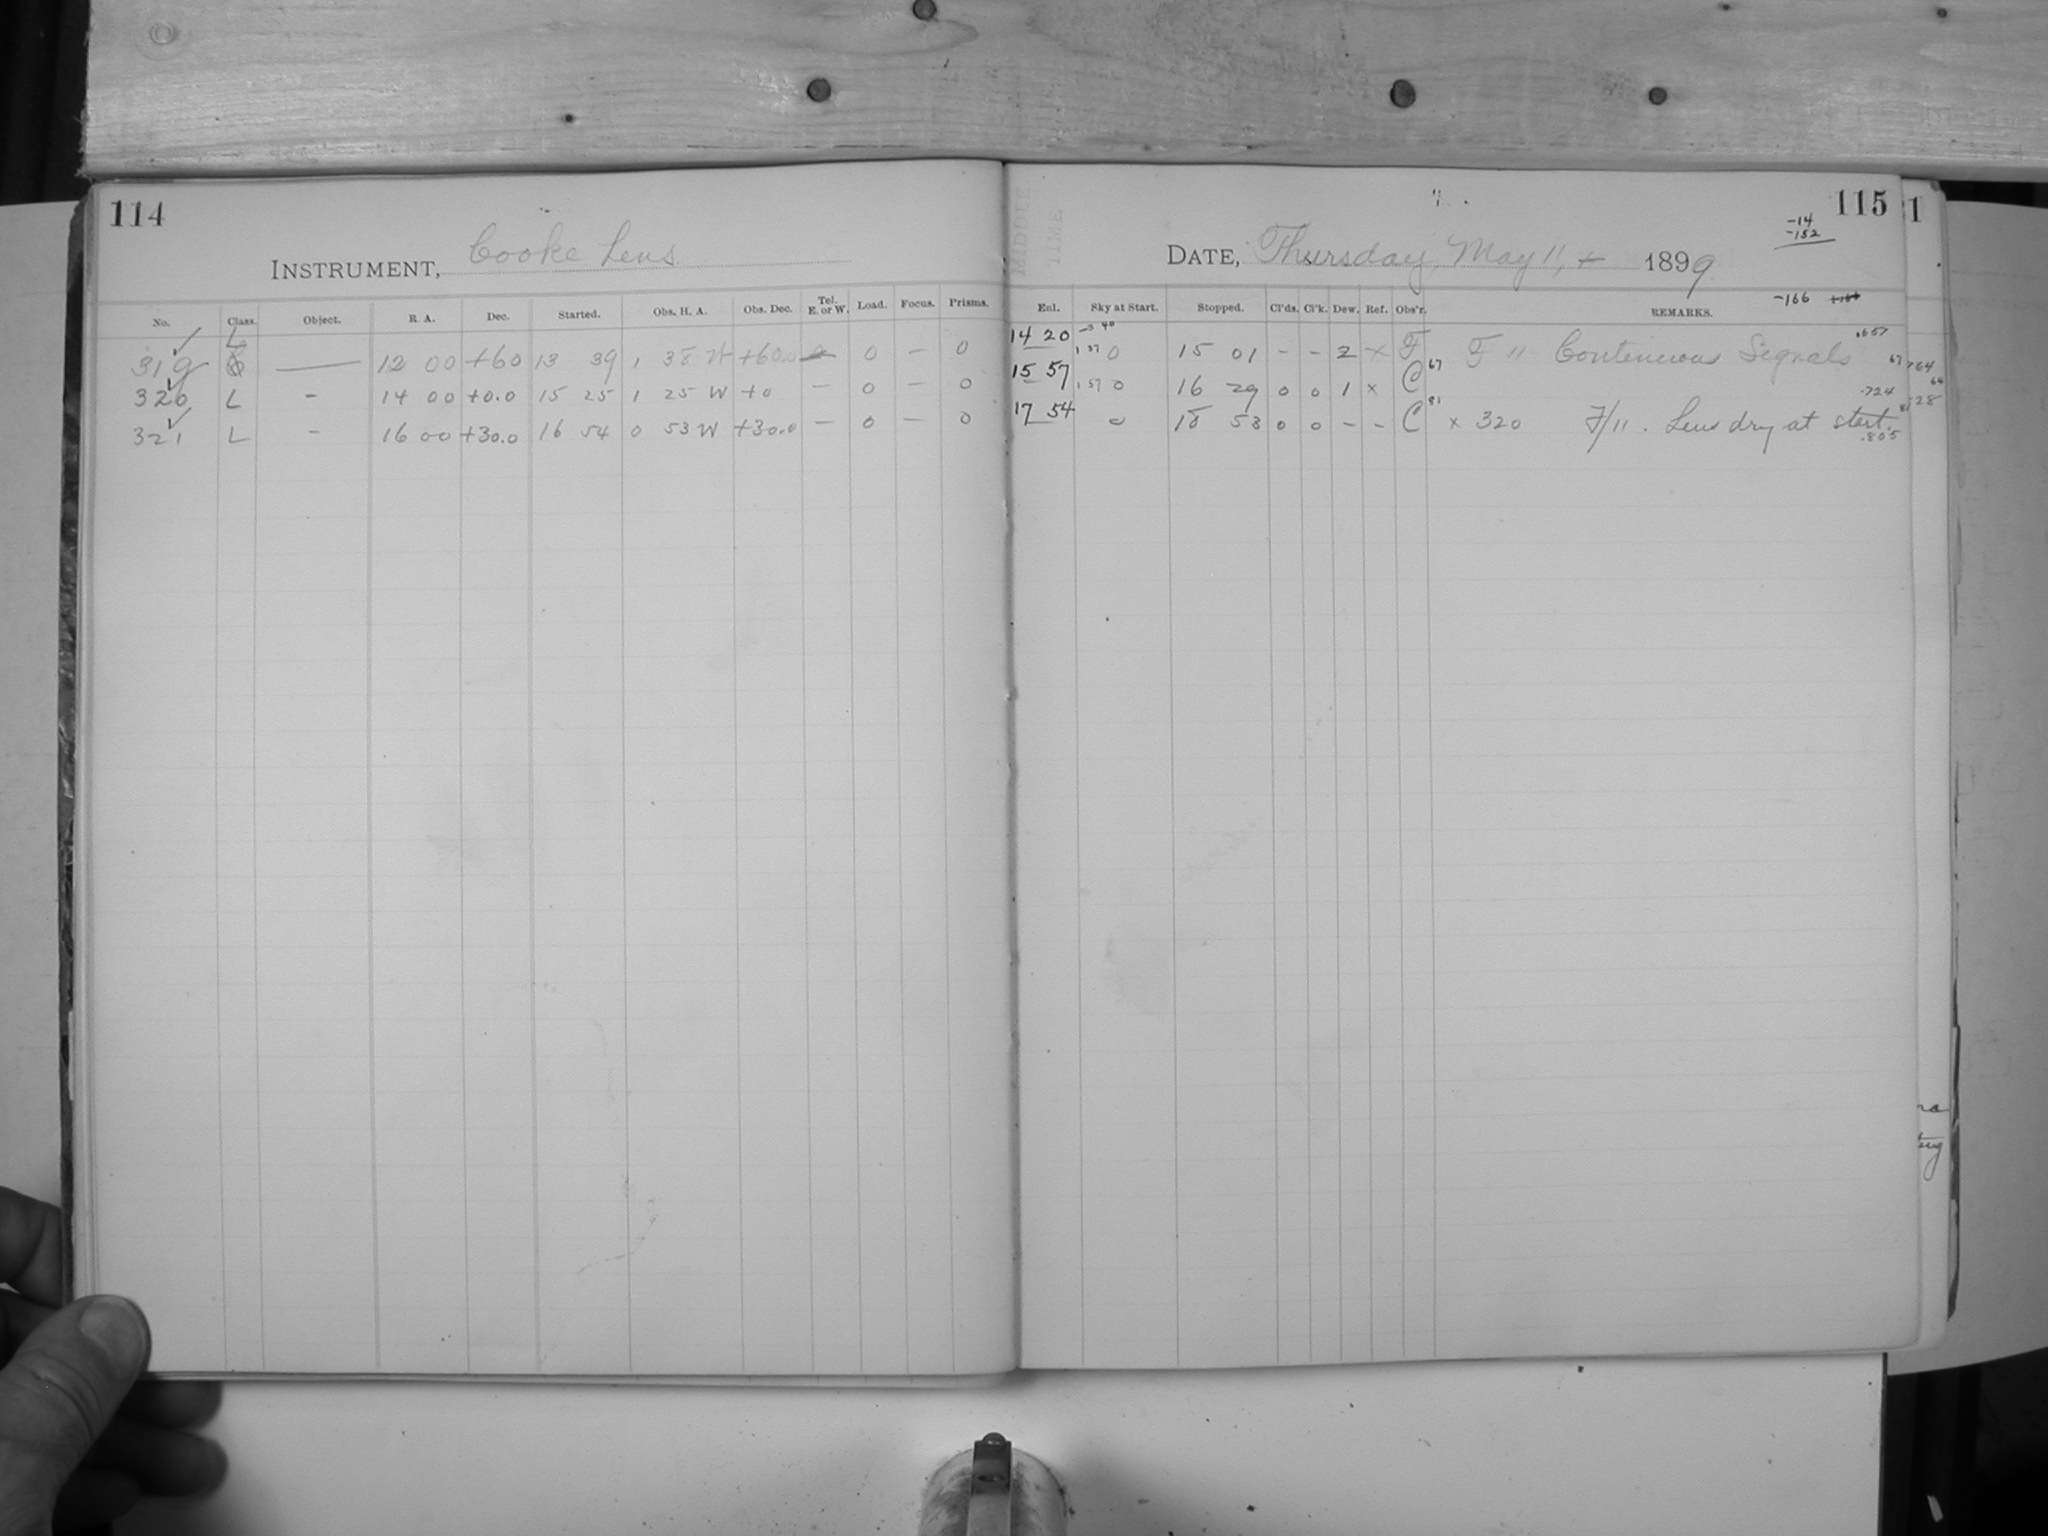 114
INSTRUMENT, Cooke Lens
No. Class. Object. R. A. Dec. Started. Obs. H. A. Obs. Dec. Tel. E. or W. Load. Focus. Prisms.
319 L — 12 00 +60 13 39 1 38 W +60.0 0 — 0
320 L - 14 00 +0.0 15 25 1 25 W +0 — 0 — 0
321 L - 16 00 +30.0 16 54 0 53 W +30.0 — 0 — 0
MIDDLE
TIME
115
1
-14
-152
DATE, Thursday, May 11, 1899
-166
Enl. Sky at Start. Stopped. Cl'ds. Cl'k. Dew. Ref. Obs'r. REMARKS.
14 20 0 15 01 - - 2 x F F 11 Continuous Signals .657
15 57 1 57 0 16 29 0 0 1 x C 67 .724
17 54 0 18 53 0 0 - - C 81 x 320 F/11. Lens dry at start. .805